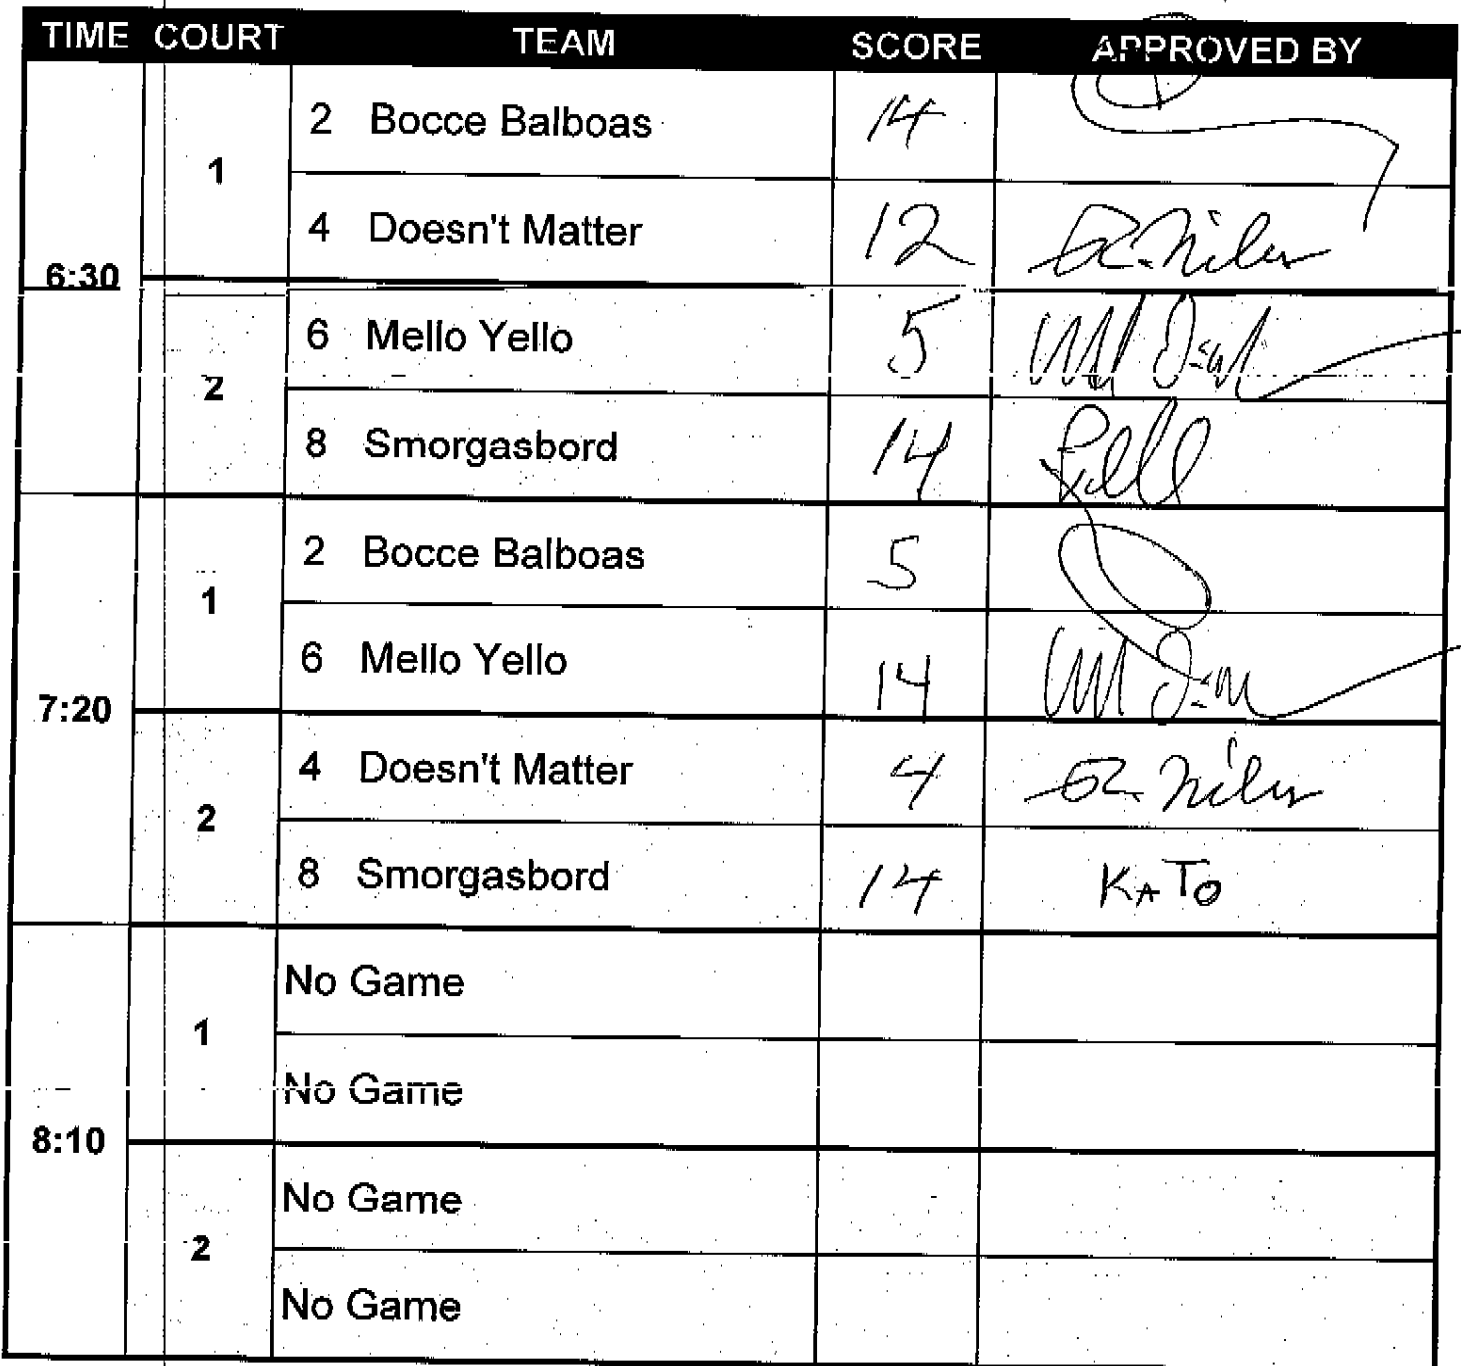 TIME COURT TEAM SCORE APPROVED BY
6:30
1
2 Bocce Balboas 14
4 Doesn't Matter 12
2
6 Mello Yello 5
8 Smorgasbord 14
7:20
1
2 Bocce Balboas 5
6 Mello Yello 14
2
4 Doesn't Matter 4
8 Smorgasbord 14 KATO
8:10
1
No Game
No Game
2
No Game
No Game